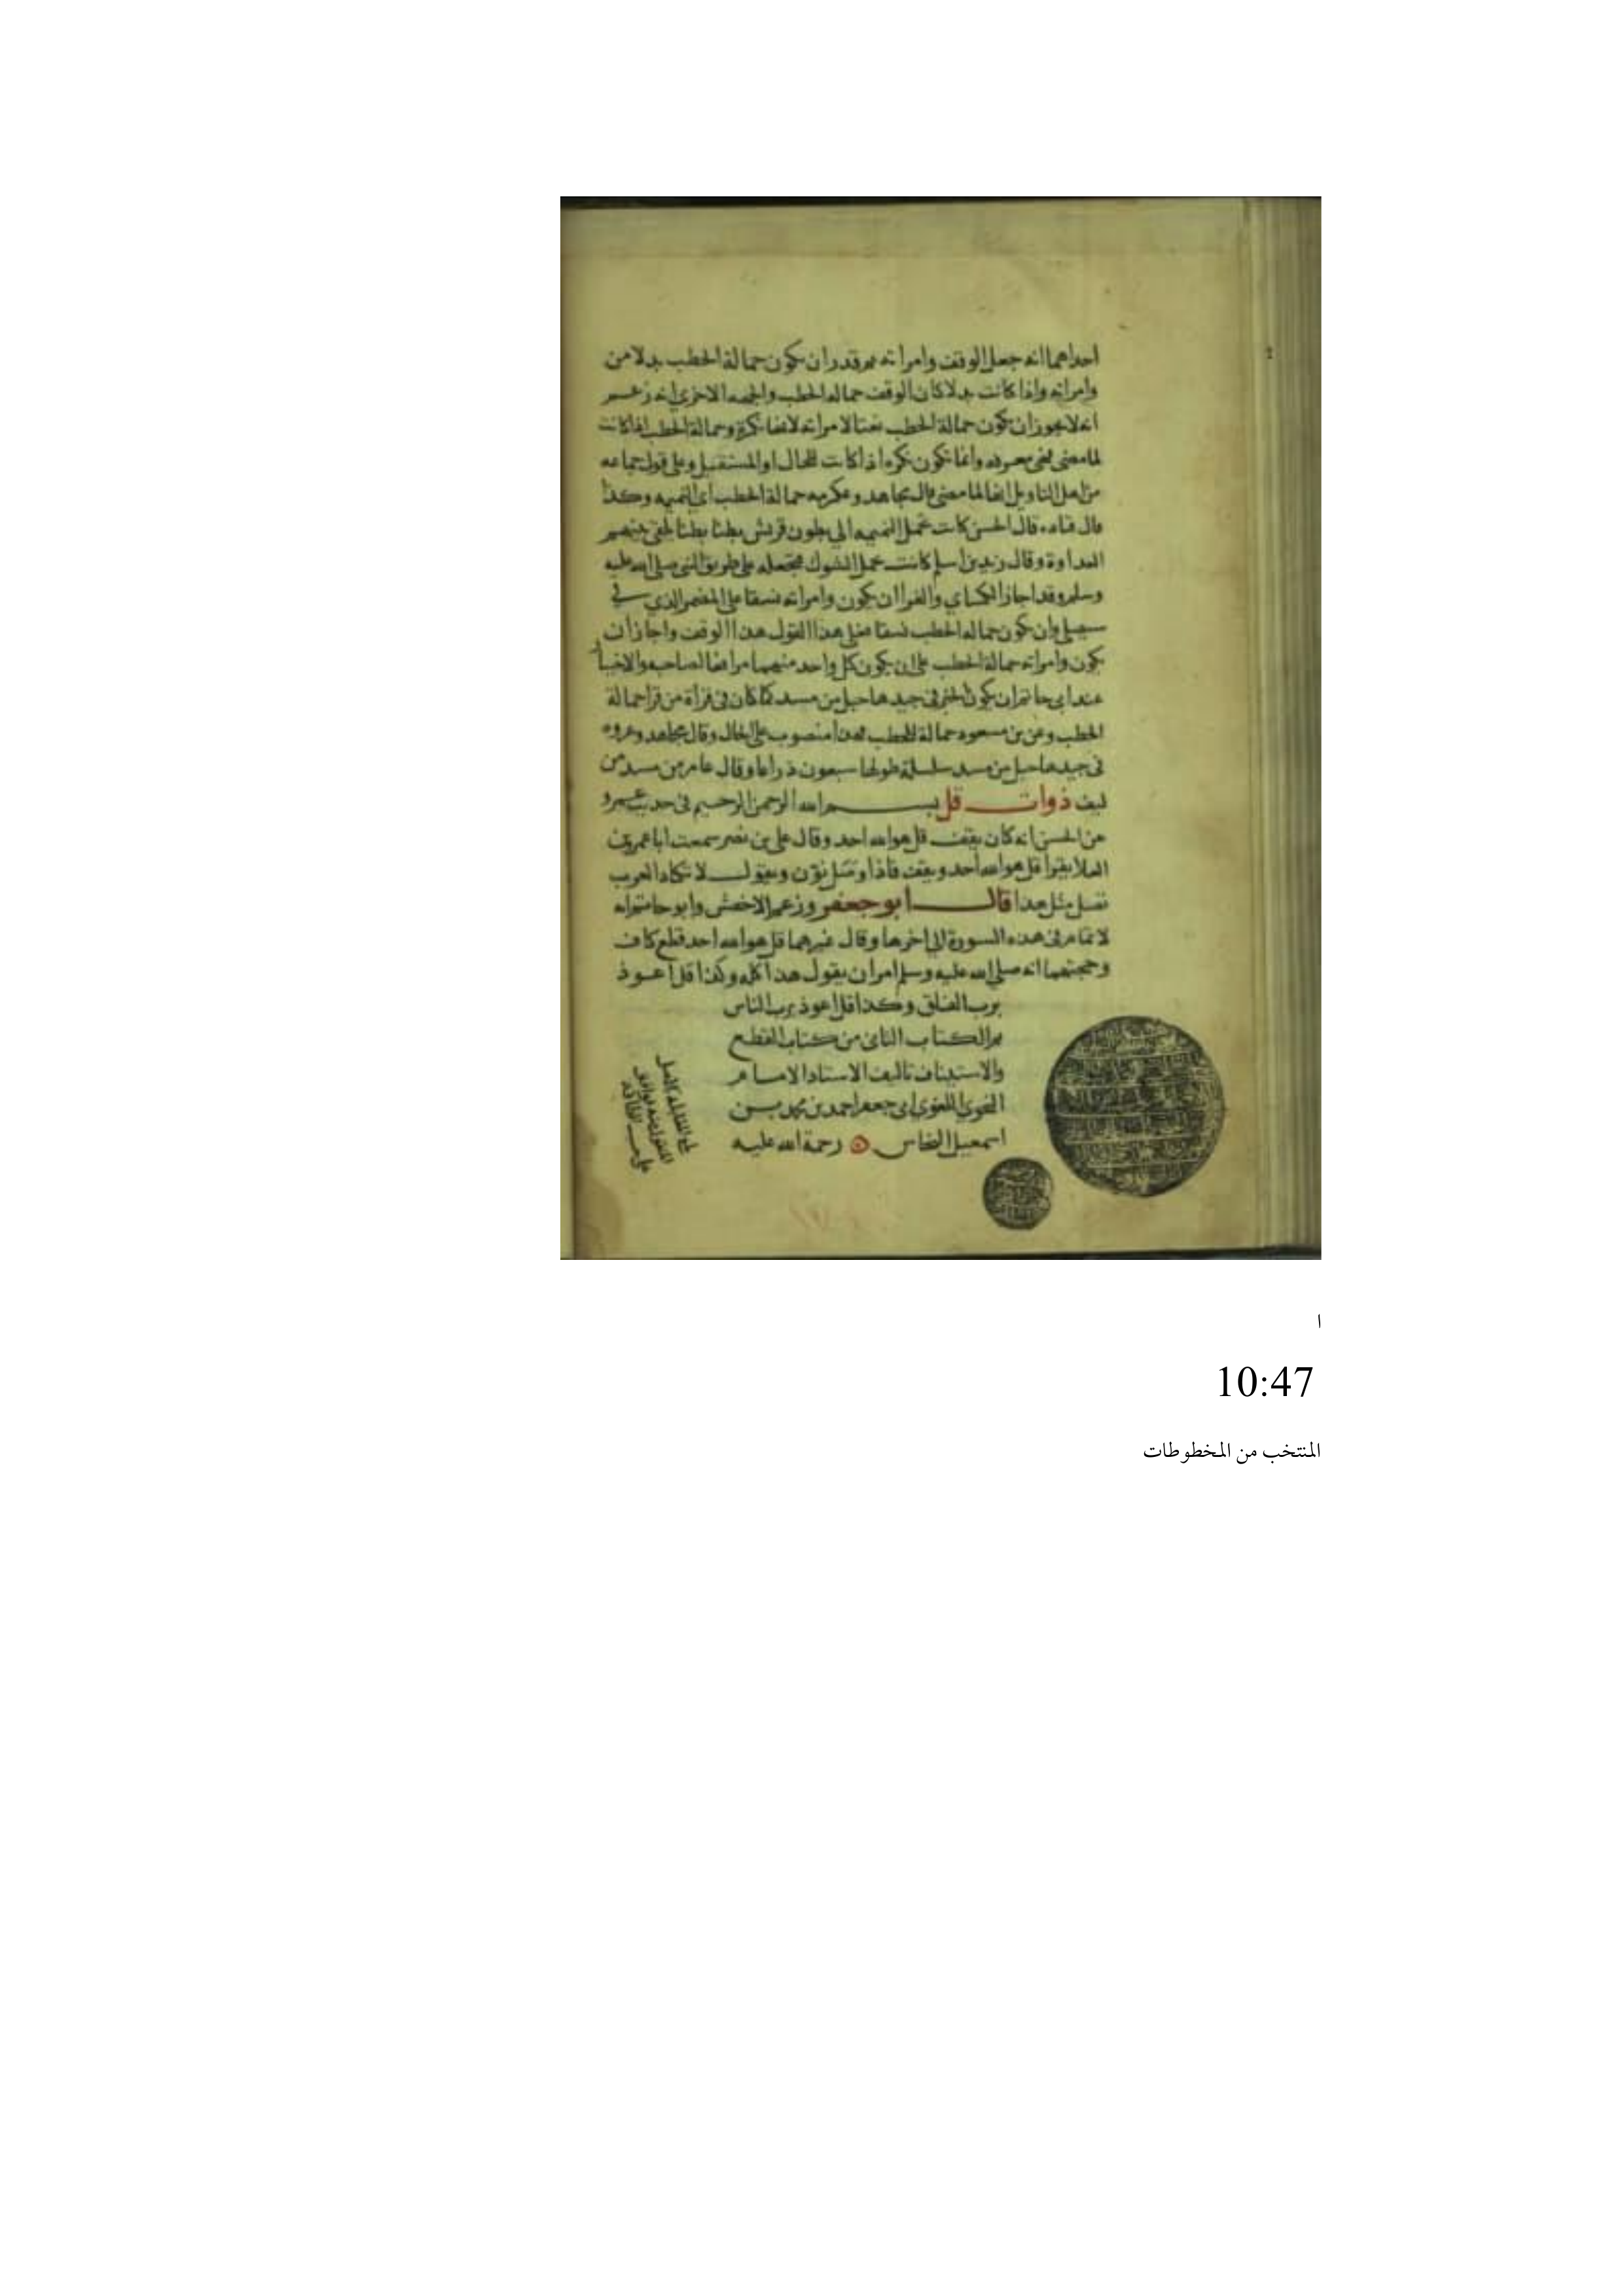 احداهما انه جعل الوقف وامراته ثم قدر ان تكون حمالة الحطب بدلا من
وامراته واذا كانت بدلا كان الوقف حماله الحطب والجهه الاخرى انه زعم
انه لا يجوز ان تكون حمالة الحطب نعتا لامراته لانها نكرة وحمالة الحطب اذا كانت
لما مضى فهى معرفه وانما تكون نكره اذا كانت للحال او المستقبل وعلى قول جماعه
من اهل التاويل انها لما مضى قال مجاهد وعكرمه حمالة الحطب اي النميمه وكذا
قال قتاده قال الحسن كانت تحمل النميمه الى بطون قريش بطنا بطنا تلقى بينهم
العداوة وقال زيد بن اسلم كانت تحمل الشوك فتجعله على طريق النبى صلى الله عليه
وسلم وقد اجاز الكساي والفرا ان تكون وامراته نسقا على المضمر الذي في
سيصلى وان تكون حماله الحطب نسقا فعلى هذا القول هذا الوقف واجازا ان
تكون وامراته حمالة الحطب على ان يكون كل واحد منهما مرافعا لصاحبه والاختيار
عند ابى حاتم ان يكون الخبر فى جيدها حبل من مسد كما كان فى قراة من قرا حمالة
الحطب وعن بن مسعود حمالة للحطب فهذا منصوب على الحال وقال مجاهد وعروه
فى جيدها حبل من مسد سلسلة طولها سبعون ذراعا وقال عامر من مسد من
ليف ذوات قل بسم الله الرحمن الرحيم فى حديث عمرو
عن الحسن انه كان يقف قل هو الله احد وقال على بن نصر سمعت ابا عمرو بن
العلا يقرا قل هو الله احد ويقف فاذا وصل نون ويقول لا تكاد العرب
تصل مثل هذا قال ابو جعفر وزعم الاخفش وابو حاتم انه
لا تمام فى هذه السورة الى اخرها وقال غيرهما قل هو الله احد قطع كاف
وحجتهما انه صلى الله عليه وسلم امر ان يقول هذا كله وكذا قل اعوذ
برب الفلق وكذا قل اعوذ برب الناس
تم الكتاب الثانى من كتاب القطع
والاستيناف تاليف الاستاذ الامام
النحوى اللغوى ابى جعفر احمد بن محمد بن
اسمعيل النحاس رحمة الله عليه
ا
10:47
المنتخب من المخطوطات